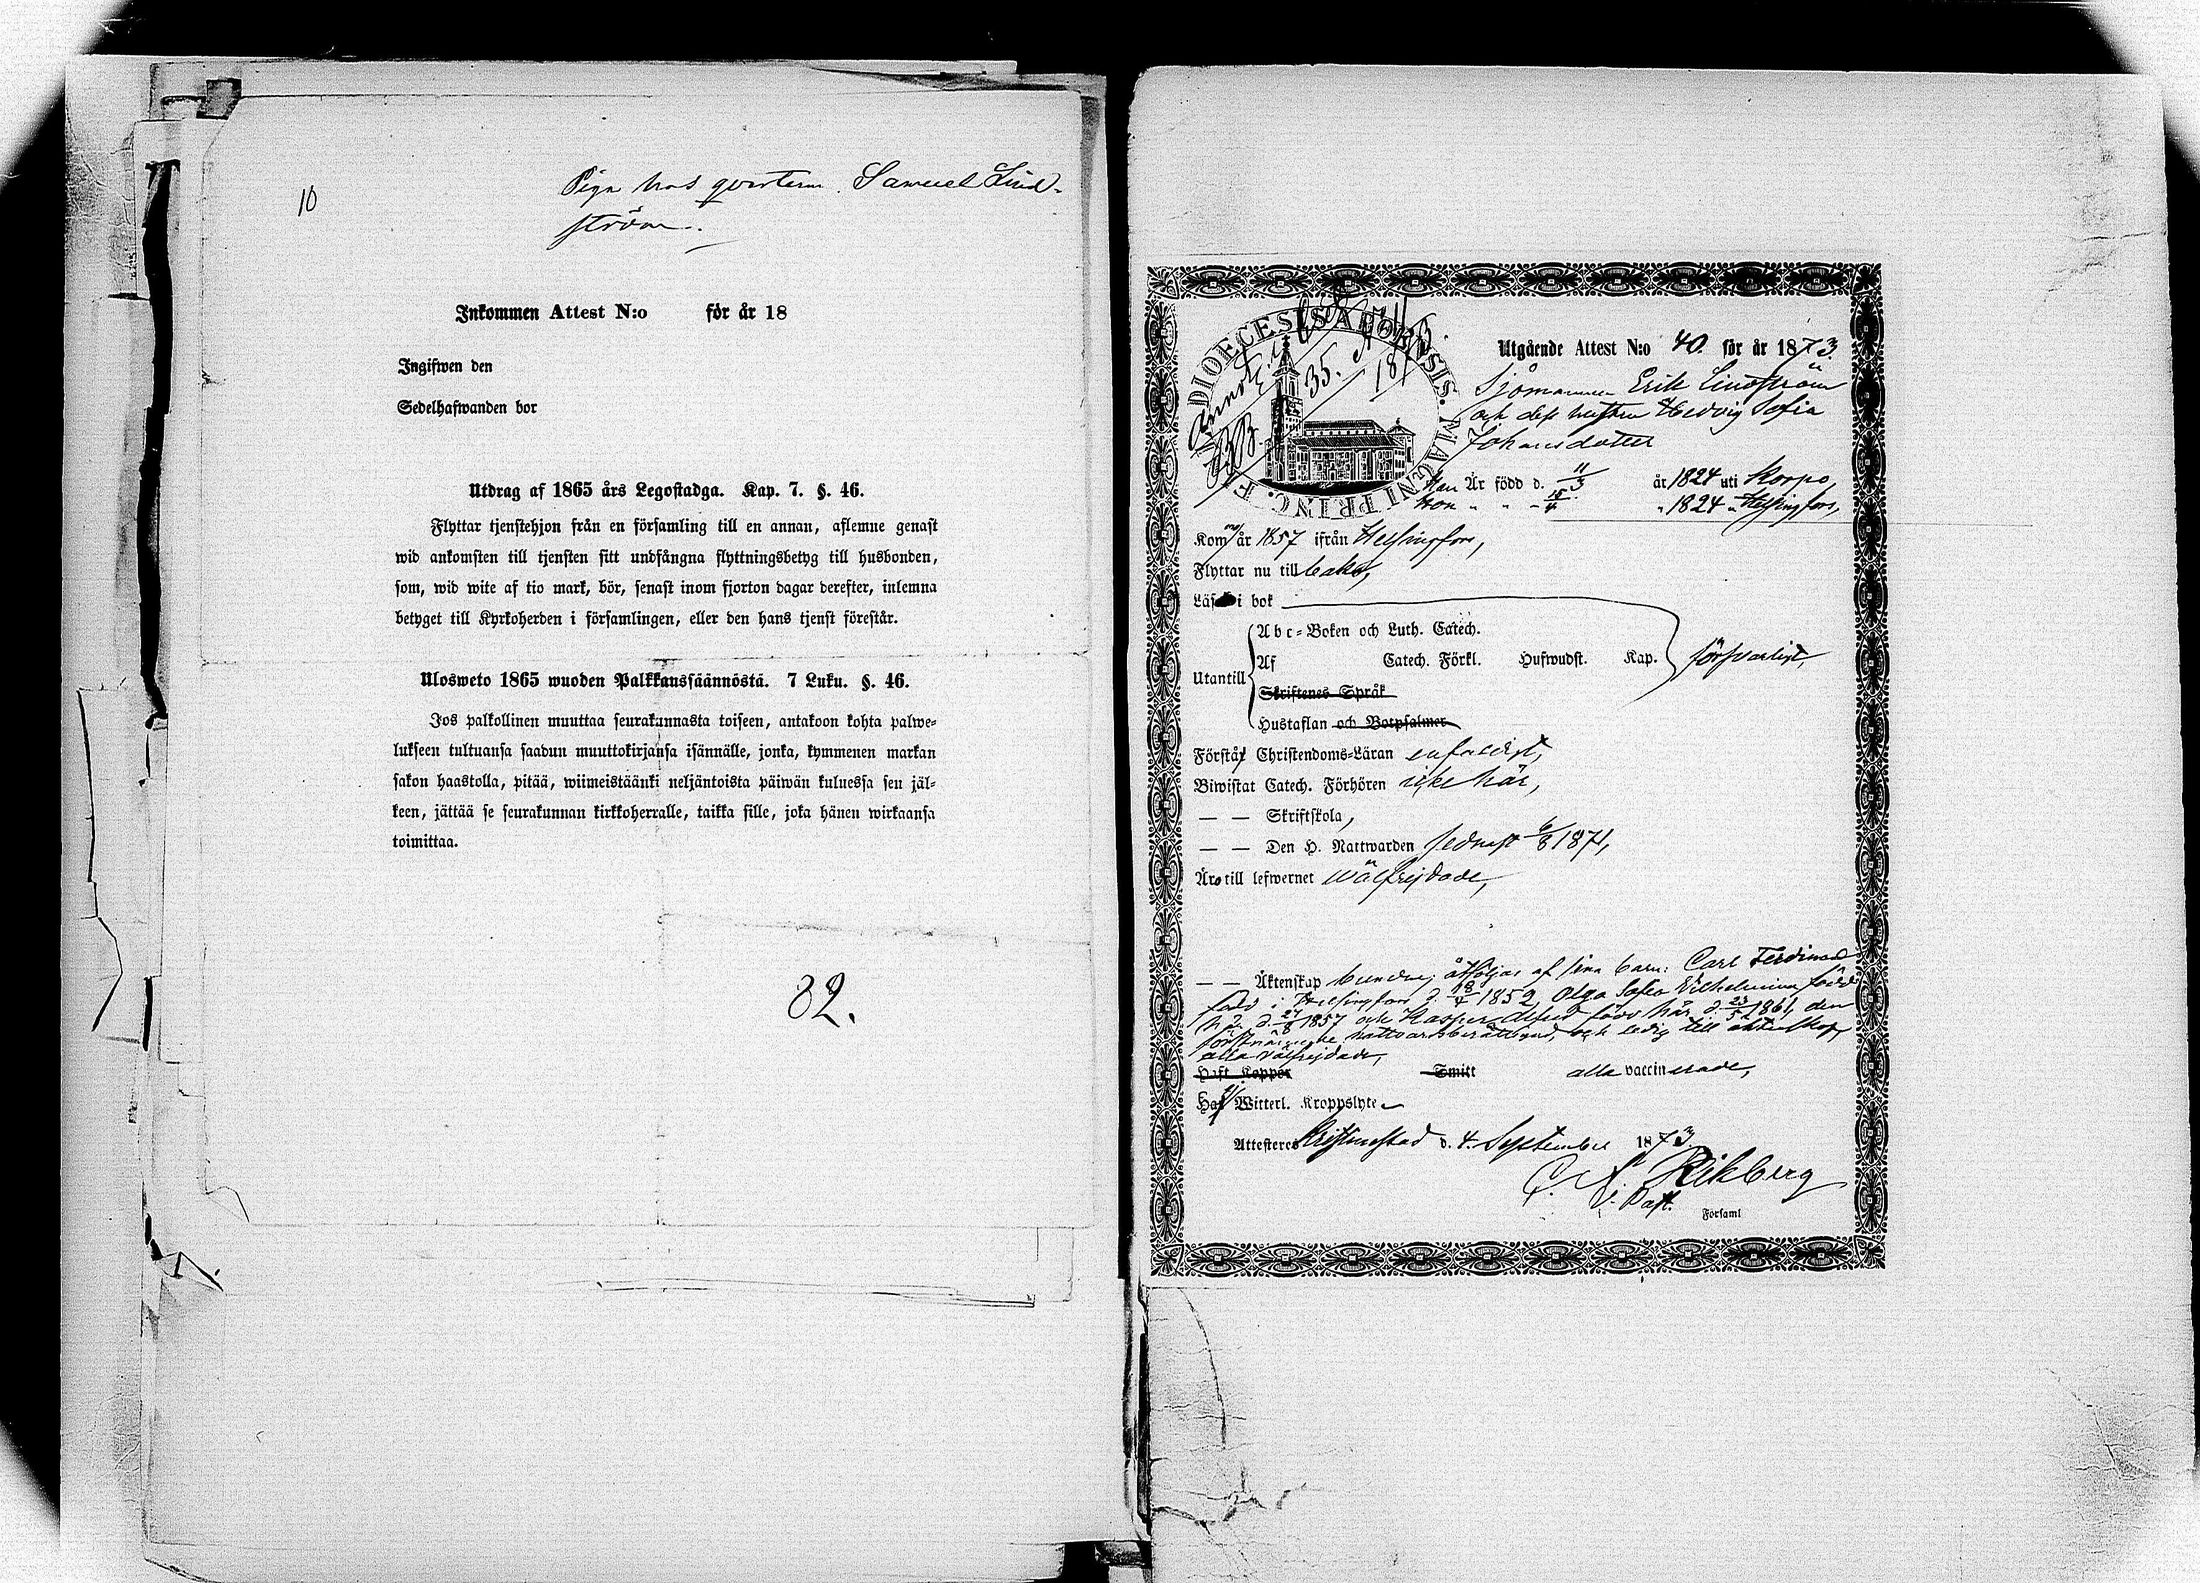 10
Piga hos qvarterm. Samuel Lind-
ström.
Inkommen Attest N:o för år 18
Ingifwen den
Sedelhafwanden bor
Utdrag af 1865 års Legostadga. Kap. 7. §. 46.
Flyttar tjenstehjon från en församling till en annan, aflemne genast
wid ankomsten till tjensten sitt undfångna flyttningsbetyg till husbonden,
som, wid wite af tio mark, bör, senast inom fjorton dagar derefter, inlemna
betyget till Kyrkoherden i församlingen, eller den hans tjenst förestår.
Ulosweto 1865 wuoden Palkkaussäännöstä. 7 Luku. §. 46.
Jos palkollinen muuttaa seurakunnasta toiseen, antakoon kohta palwe-
lukseen tultuansa saadun muuttokirjansa isännälle, jonka, kymmenen markan
sakon haastolla, pitää, wiimeistäänki neljäntoista päiwän kuluessa sen jäl-
keen, jättää se seurakunnan kirkkoherralle, taikka sille, joka hänen wirkaansa
toimittaa.
82.
DIOECESIS ABOENSIS. MAGNI PRINC. F.
35.
Utgående Attest N:o 40. för år 1873.
Sjömannen Erik Lindström
och dess hustru Hedvig Sofia
Johansdotter
Han Är född d. 11/3 år 1824 uti Korpo,
Hon " " - 15/4 " 1824 " Helsingfors,
Kom år 1857 ifrån Helsingfors,
Flyttar nu tillbaka,
Läs i bok
Abc-Boken och Luth. Catech.
Af Catech. Förkl. Hufwudst. Kap. försvarligt,
Utantill
Skriftenes Språk
Hustaflan och Botpsalmer
Förstå Christendoms-Läran enfaldigt,
Biwistat Catech. Förhören icke här,
— — Skriftskola,
— — Den H. Nattwarden sednast 6/8 1871,
Äro till lefwernet wälfrejdade,
— — Äktenskap bundne; åtföljas af sina barn: Carl Ferdinand
född i Helsingfors d. 18/4 1852, Olga Sofia Wilhelmina född
d. 24/8 1857 och Kasper Alfred född här d. 23/5 1861, den
förstnämnde nattvardsberättigad, och ledig till äktenskap,
alla välfrejdade,
Haft Koppor Smitt alla vaccinerade,
Haf Witterl. Kroppslyte
Attesteres Kristinestad d. 4 September 1873.
Rikberg
v. Past.
Forsaml